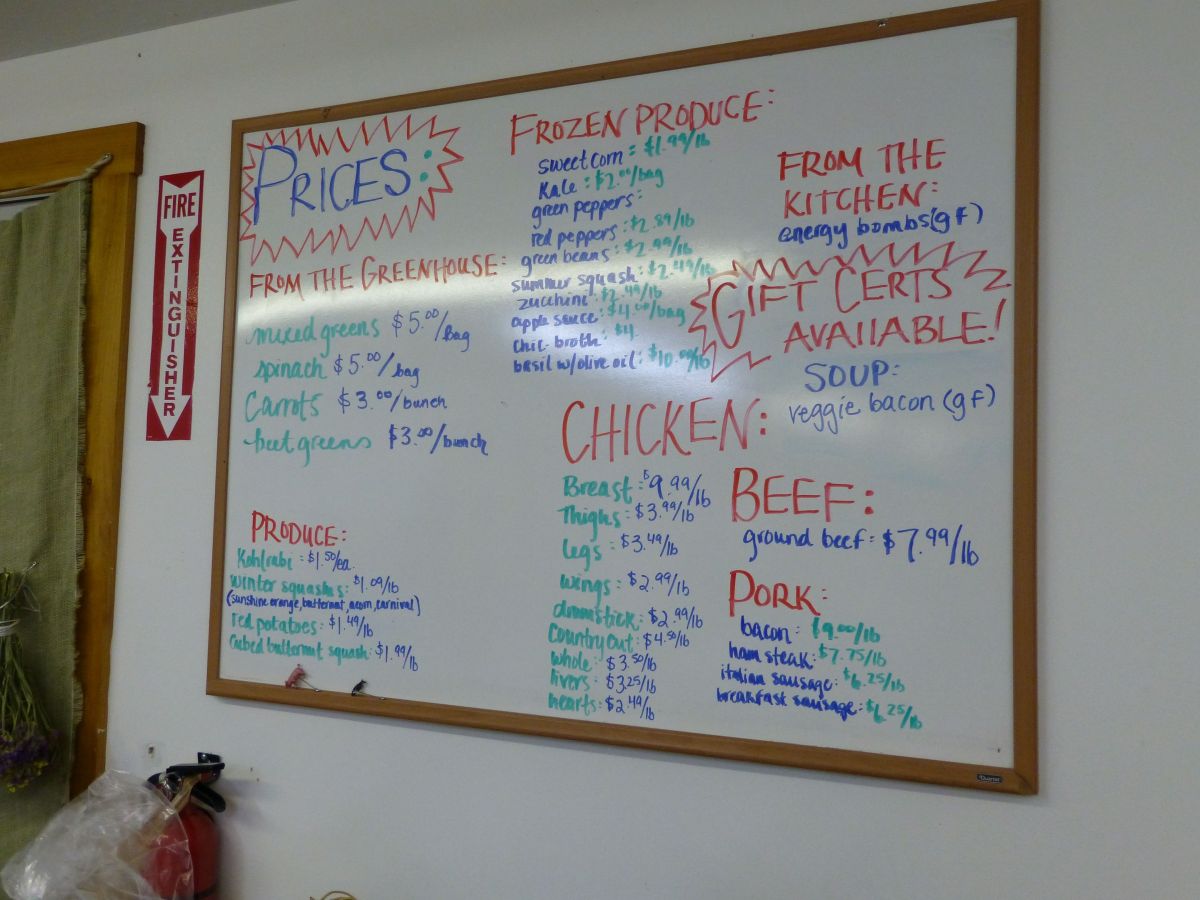 FIRE
EXTINGUISHER
PRICES:
FROM THE GREENHOUSE:
mixed greens $5.00/bag
spinach $5.00/bag
Carrots $3.00/bunch
beet greens $3.00/bunch
PRODUCE:
Kohlrabi: $1.50/ea.
winter squashs: $1.09/lb
(sunshine orange, butternut, acorn, carnival)
red potatoes: $1.49/lb
cubed butternut squash: $1.99/lb
FROZEN PRODUCE:
sweet corn: $1.99/lb
Kale: $2.00/bag
green peppers:
red peppers: $2.89/lb
green beans: $2.99/lb
summer squash: $2.49/lb
zucchini: $2.49/lb
apple sauce: $4.00/bag
chic broth: $4.
basil w/olive oil: $10.00/lb
CHICKEN:
Breast: $9.99/lb
Thighs: $3.99/lb
Legs: $3.49/lb
wings: $2.99/lb
drumstick: $2.99/lb
Country Cut: $4.50/lb
whole: $3.50/lb
livers: $3.25/lb
hearts: $2.49/lb
FROM THE
KITCHEN:
energy bombs (gf)
GIFT CERTS
AVAIlABLE!
SOUP:
veggie bacon (gf)
BEEF:
ground beef: $7.99/lb
PORK:
bacon: $9.00/lb
ham steak: $7.75/lb
italian sausage: $6.25/lb
breakfast sausage: $6.25/lb
Quartet